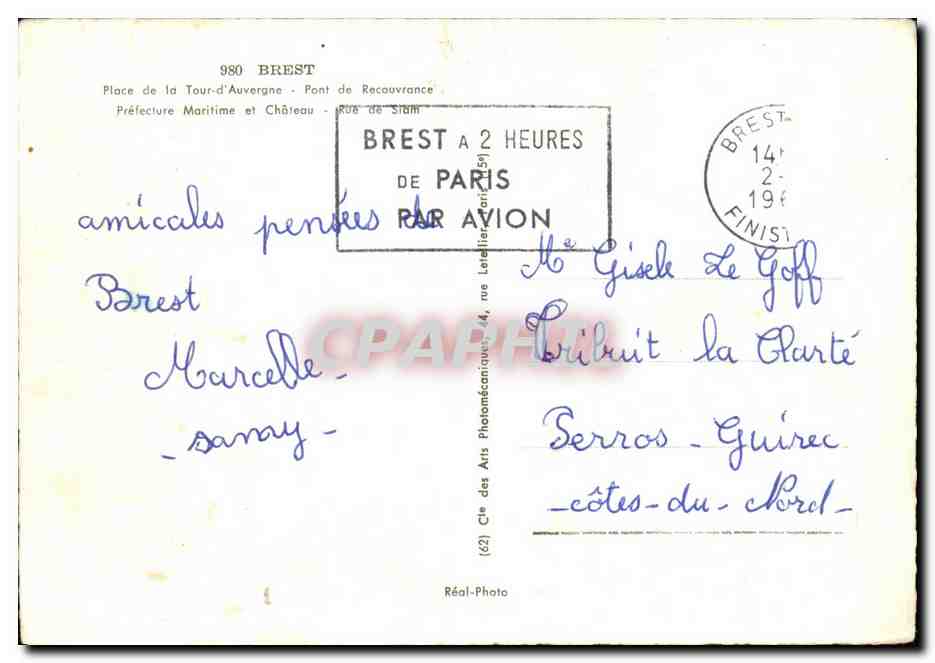 980 BREST
Place de la Tour-d'Auvergne - Pont de Recouvrance
Préfecture Maritime et Château - Rue de Siam
BREST A 2 HEURES
DE PARIS
PAR AVION
BREST
14
2-
196
FINIST
amicales pensées de
Brest
Marcelle -
(62) Cie des Arts Photomécaniques, 44, rue Letellier, Paris (15e)
Me Gisele Le Goff
Tribruit la Clarté
Perros - Guirec
- côtes - du - Nord -
CPAPHIL
Réal-Photo